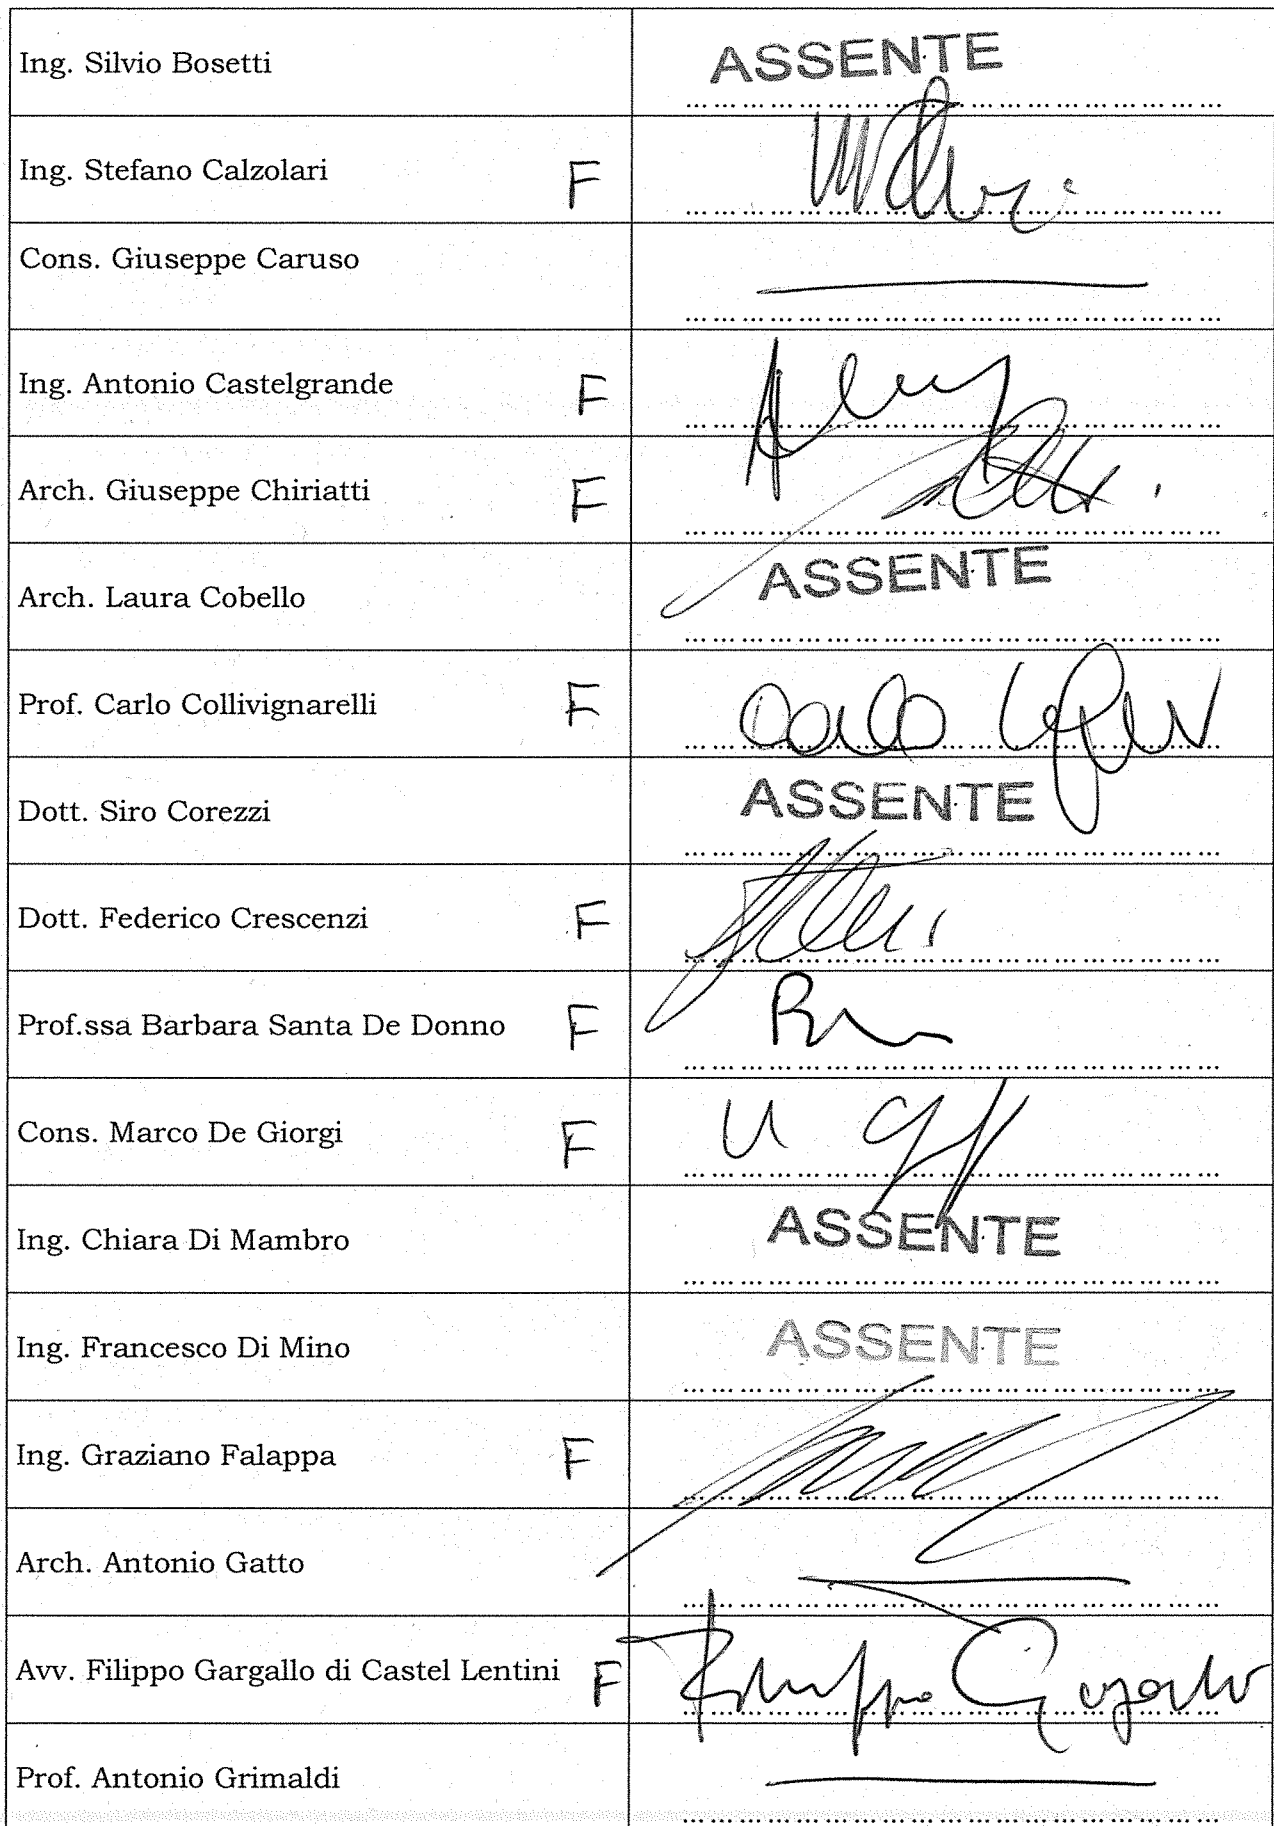 Ing. Silvio Bosetti ASSENTE
Ing. Stefano Calzolari F
Cons. Giuseppe Caruso
Ing. Antonio Castelgrande F
Arch. Giuseppe Chiriatti F
Arch. Laura Cobello ASSENTE
Prof. Carlo Collivignarelli F Carlo
Dott. Siro Corezzi ASSENTE
Dott. Federico Crescenzi F
Prof.ssa Barbara Santa De Donno F
Cons. Marco De Giorgi F
Ing. Chiara Di Mambro ASSENTE
Ing. Francesco Di Mino ASSENTE
Ing. Graziano Falappa F
Arch. Antonio Gatto
Avv. Filippo Gargallo di Castel Lentini F Filippo Gargallo
Prof. Antonio Grimaldi